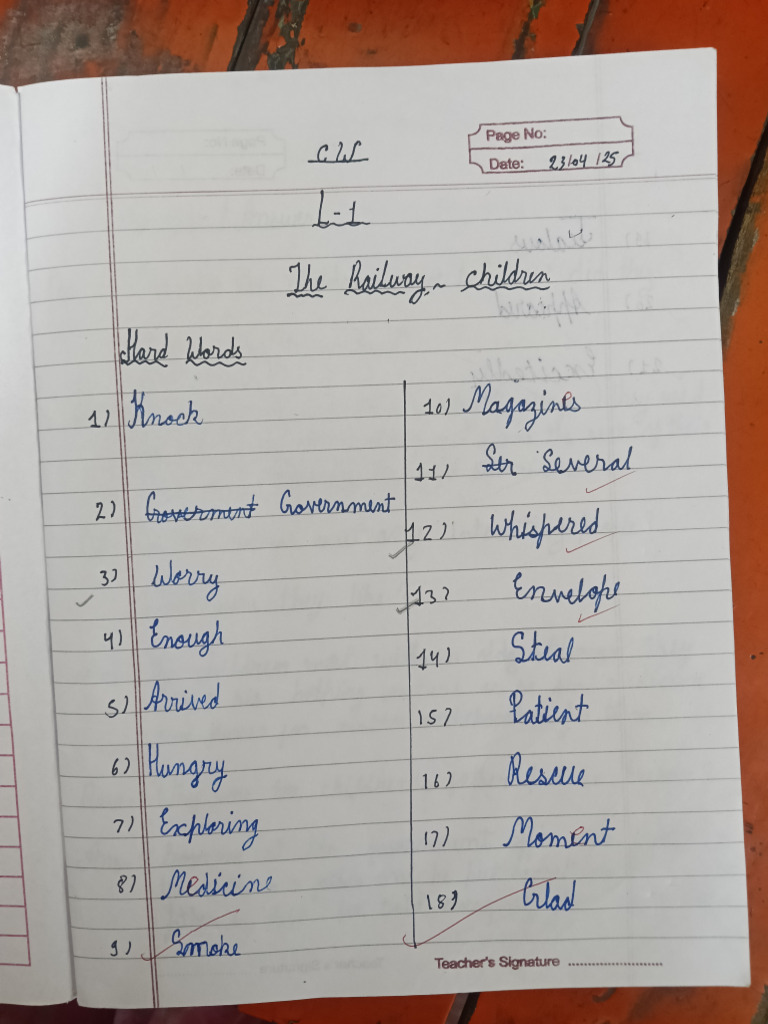 CW
Page No:
Date: 23/04/25
L-1
The Railway children
Hard Words
1) Knock
2) Goverment Government
3) Worry
4) Enough
5) Arrived
6) Hungry
7) Exploring
8) Medicine
9) Smoke
10) Magazines
11) Ser Several
12) Whispered
13) Envelope
14) Steal
15) Patient
16) Rescue
17) Moment
18) Glad
Teacher's Signature ........................